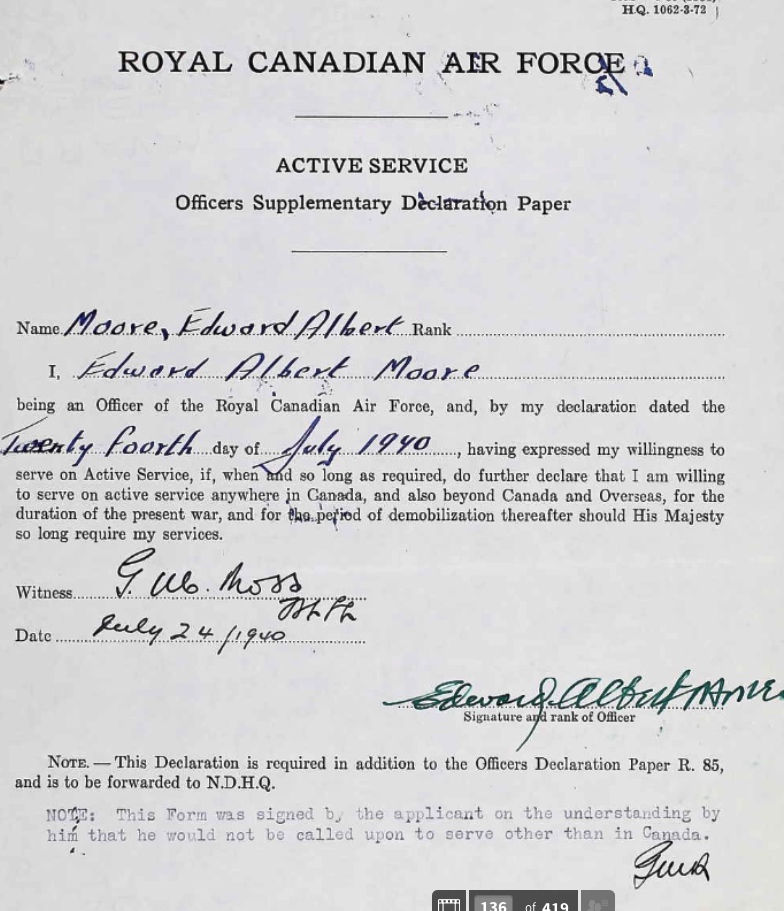 H.Q. 1062-3-72
ROYAL CANADIAN AIR FORCE
ACTIVE SERVICE
Officers Supplementary Declaration Paper
Name Moore, Edward Albert Rank
I, Edward Albert Moore
being an Officer of the Royal Canadian Air Force, and, by my declaration dated the
Twenty fourth day of July 1940, having expressed my willingness to
serve on Active Service, if, when and so long as required, do further declare that I am willing
to serve on active service anywhere in Canada, and also beyond Canada and Overseas, for the
duration of the present war, and for the period of demobilization thereafter should His Majesty
so long require my services.
Witness
Date July 24/1940
Edward Albert Moore
Signature and rank of Officer
NOTE.—This Declaration is required in addition to the Officers Declaration Paper R. 85,
and is to be forwarded to N.D.H.Q.
NOTE: This Form was signed by the applicant on the understanding by
him that he would not be called upon to serve other than in Canada.
136 of 419